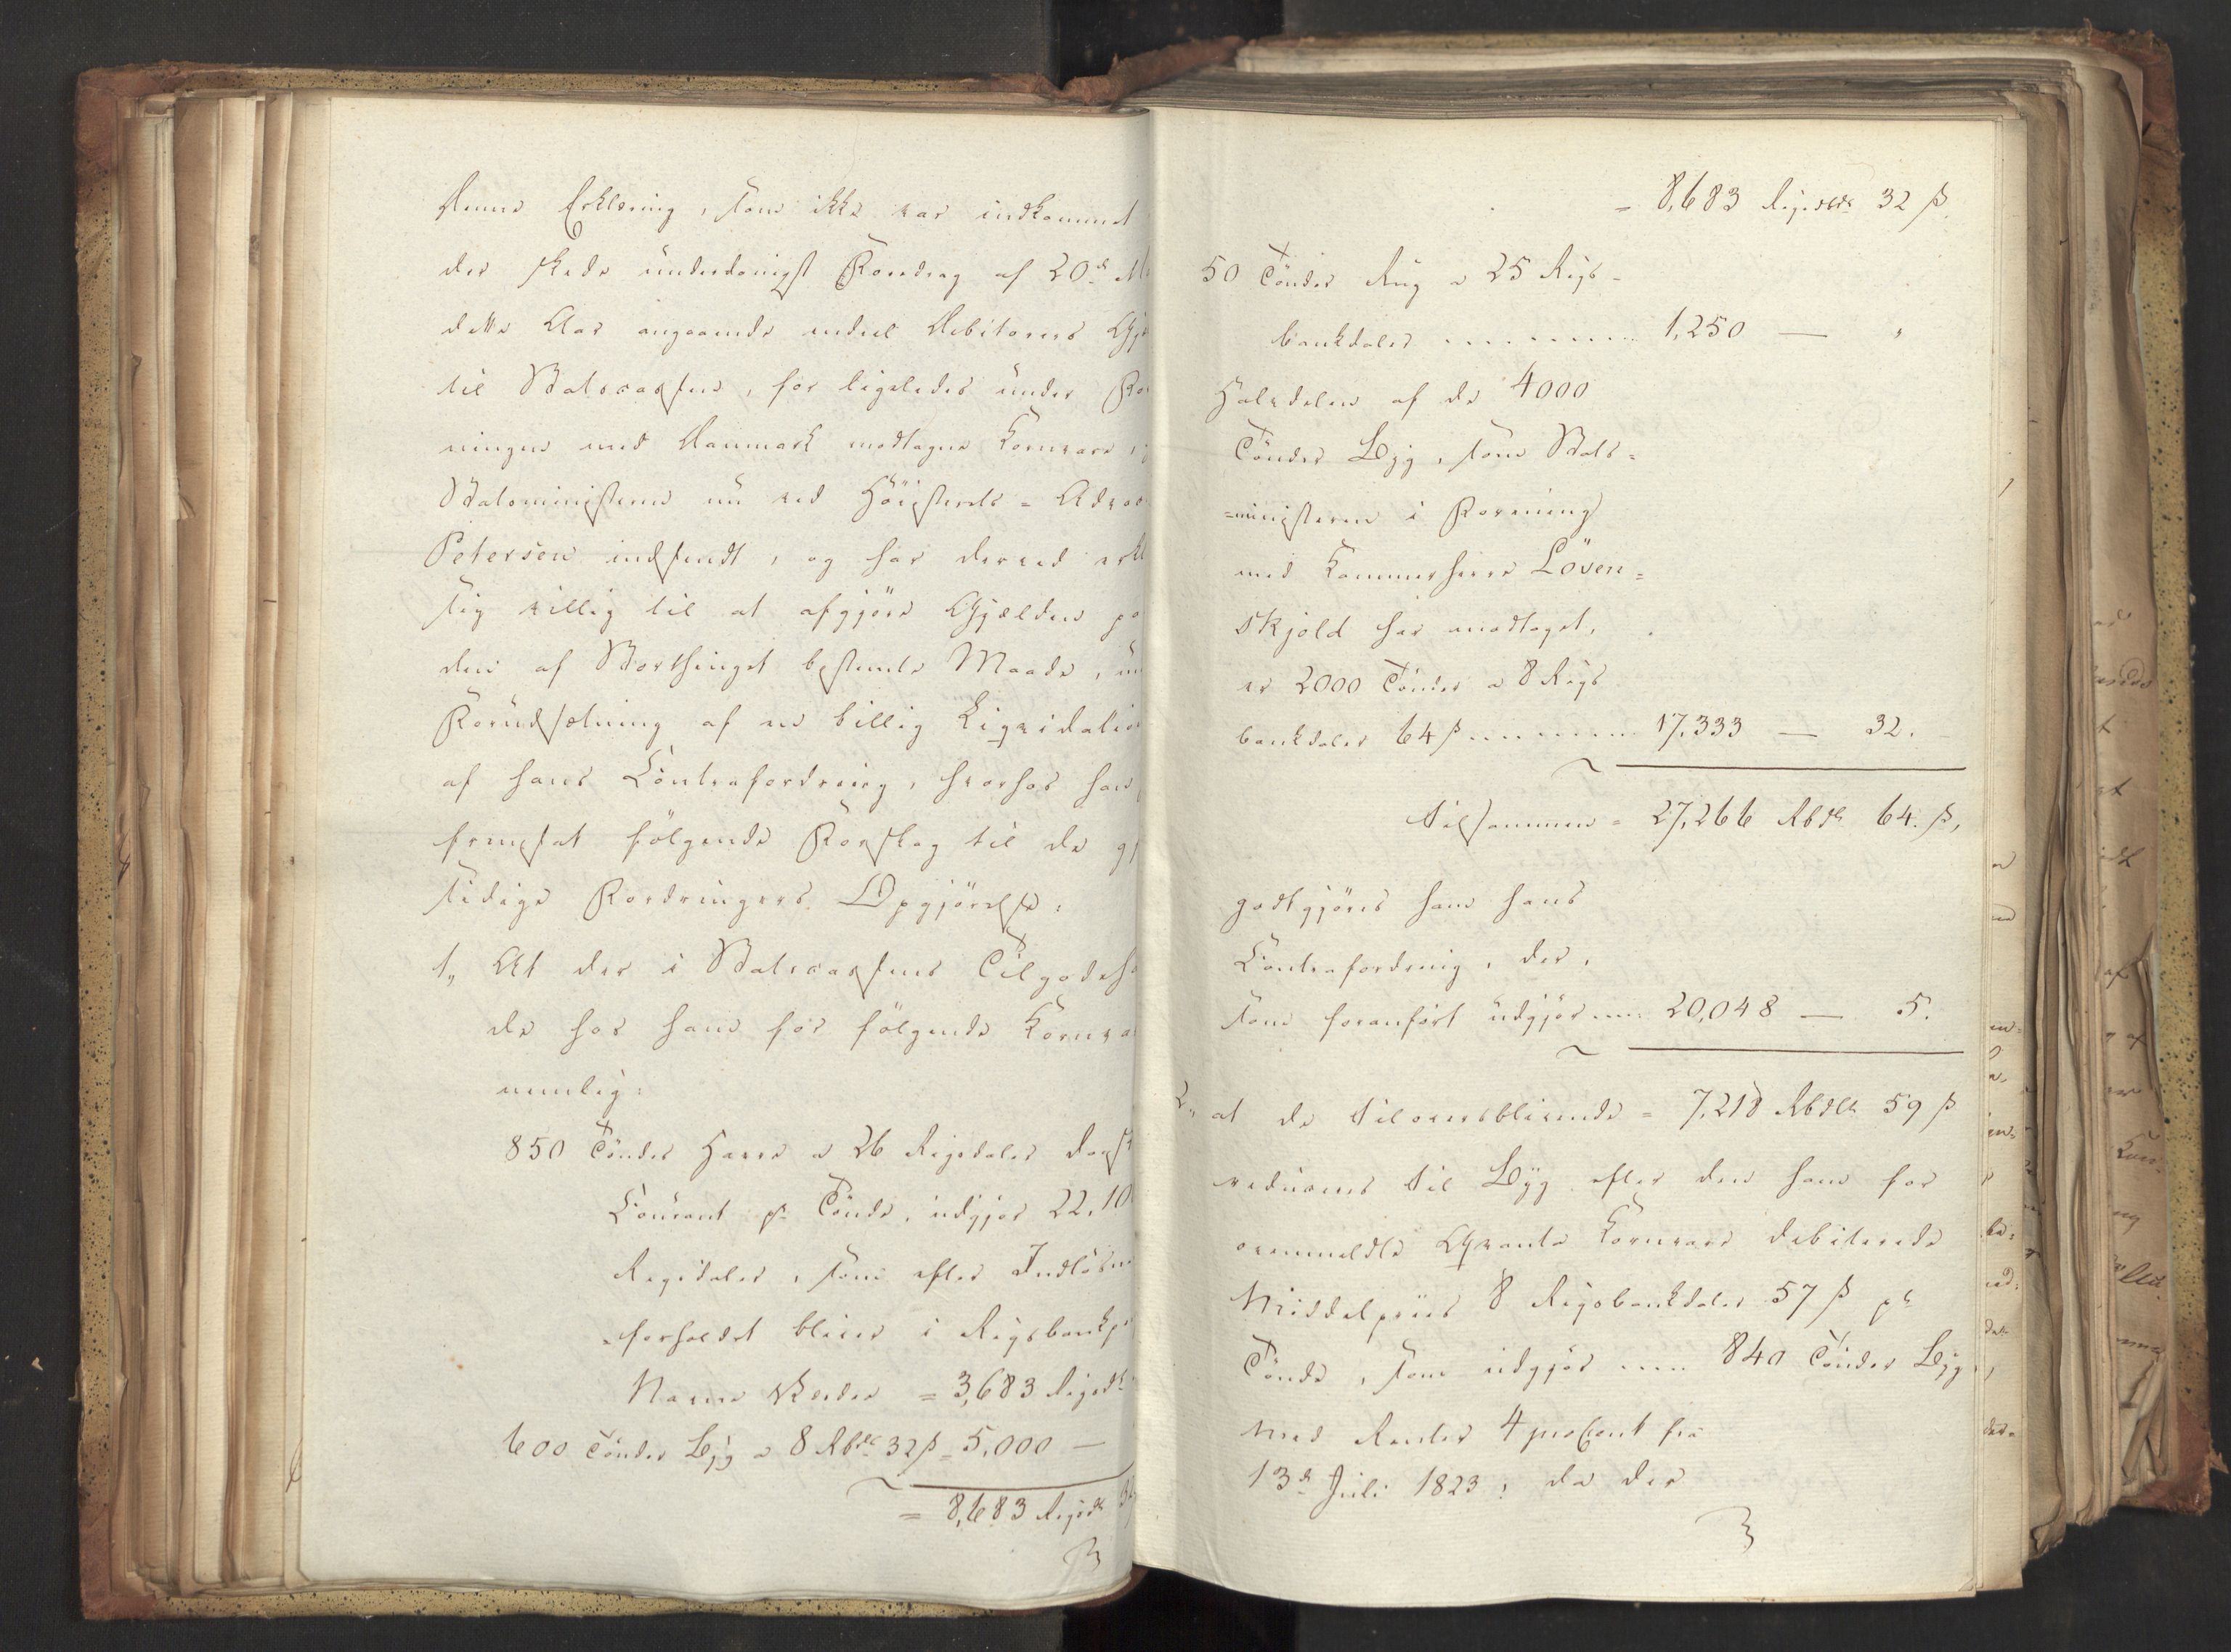 Denne Erklæring, som ikke var indkommet
der skede underdanigst Foredrag af 20de
dette Aar angaaende endeel Debitorers
til Statscassen, for ligeledes under
ningen med Danmark modtagne Kornvare,
Statsministeren nu ved Höiesterets-
Petersen indsendt, og har derved
sig villig til at afgjöre Gjælden
den af Storthinget bestemte Maade,
Forudsætning af en billig Liqvidation
af hans Contrafordring, hvorhos han
fremsat fölgende Forslag til de
sidige Fordringers Opgjörelse:
1, At der i Statscassens
de hos ham for fölgende
nemlig:
850 Tönder Havre a 26 Rigsdaler dansk
Courant pr Tönde, udgjör 22,10
Rigsdaler, som efter
forholdet bliver i
Navne Værdie = 3,683 Rigsdr
600 Tönder Byg a 8 Rbdlr 32 ß = 5,000 —
= 8,683 Rigsdr
= 8,683 Rigsbdr 32 ß
50 Tönder Rug a 25 Rigs-
bankdaler ......... 1,250 — "
Halvdelen af de 4000
Tönder Byg, som Stats-
=ministeren i Forening
med Kammerherre Löven=
skjold har modtaget,
er 2000 Tönder a 8 Rigs
bankdaler 64 ß ......... 17,333 — 32.
tilsammen = 27,266 Rbdlr 64. ß,
godtgjöres ham hans
Contrafordring, der,
som foranfört udgjör .... 20,048 — 5.
2, at de tiloversblivende = 7,218 Rbdlr 59 ß
reduceres til Byg efter den ham for
ovenmeldte Qvanta Kornvare debiterede
Middelpriis 8 Rigsbankdaler 57 ß pr
Tönde, som udgjör .... 840 Tönder Byg,
med Renter 4 procent fra
13de Juli 1823; da der